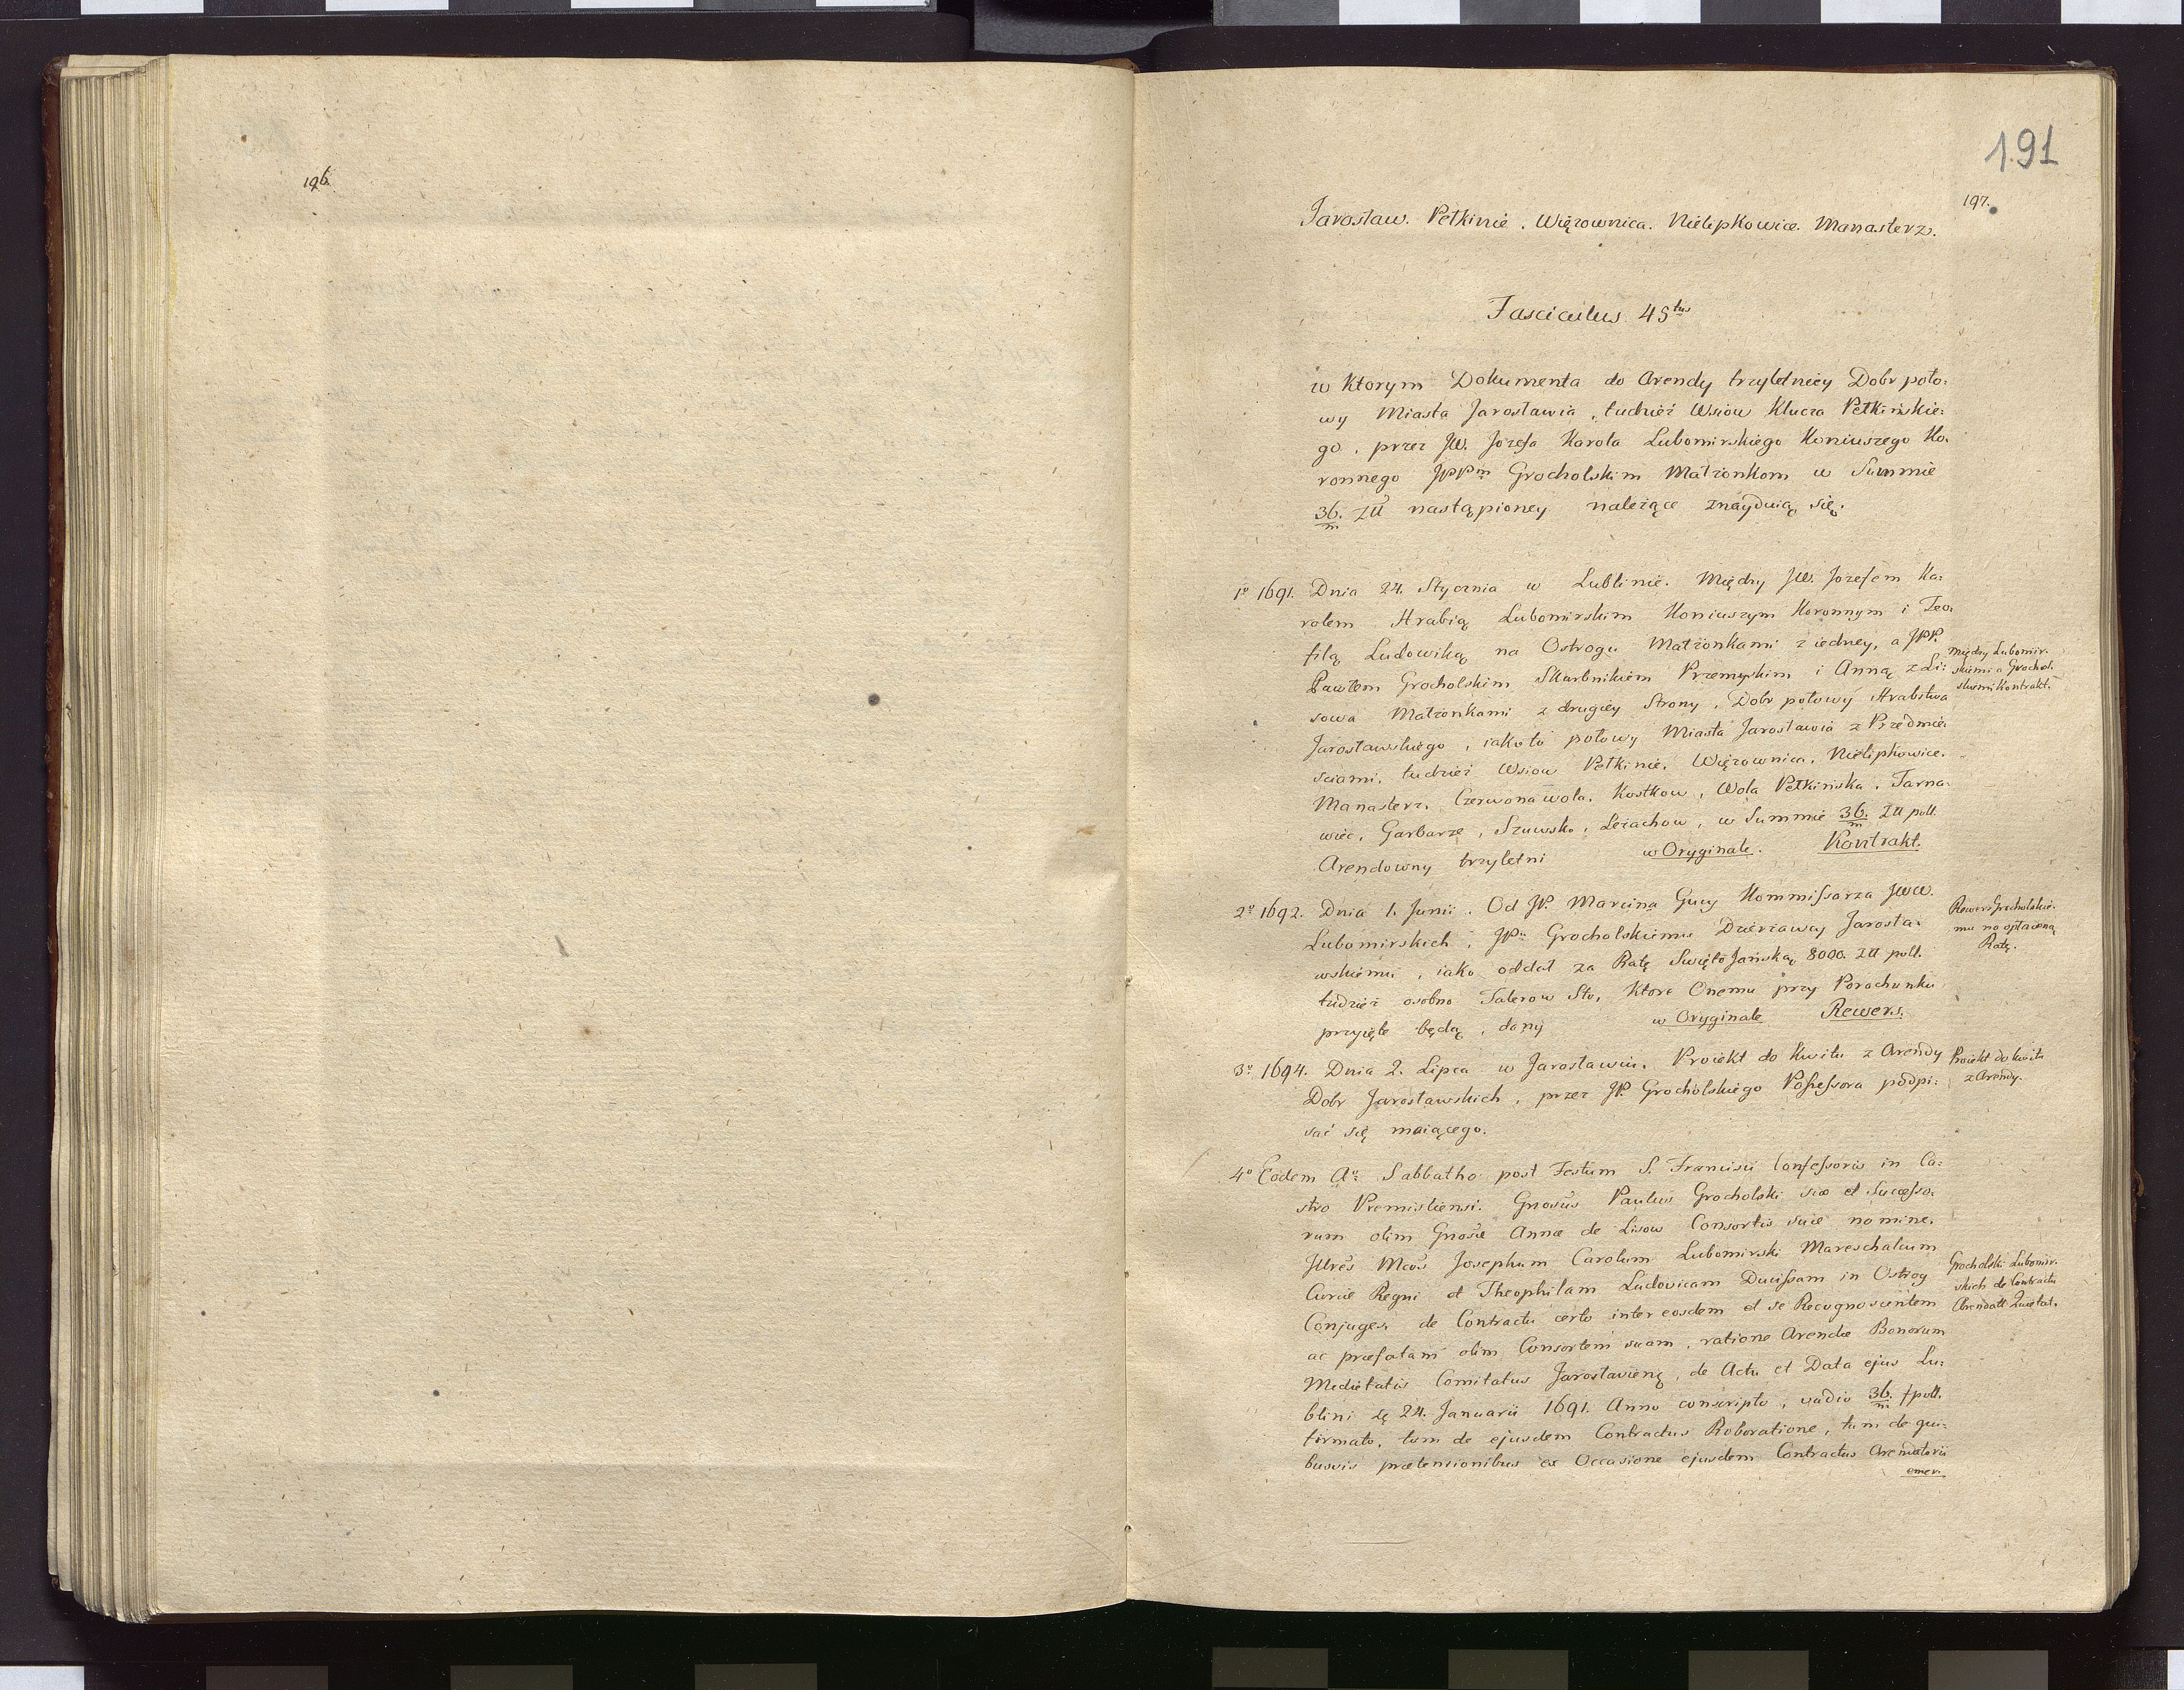 196.
191
197.
Jarosław. Pełkinie. Więzownica. Nielipkowice. Manasterz.
Fasciculus 45tus
w Ktorym Dokumenta do Arendy trzyletniey Dobr poło:
wy Miasta Jarosławia, tudzież Wsiow Klucza Pełkińskie:
go, przez JW. Jozefa Karola Lubomirskiego Koniuszego Ko:
ronnego JPPm Grocholskim Małżonkom w Summie
36/m Złł nastąpioney należące znayduią się.
1o 1691. Dnia 24. Stycznia w Lublinie. Między JW. Jozefem Ka:
rolem Hrabią Lubomirskim Koniuszym Koronnym i Teo:
filą Ludowiką na Ostrogu Małżonkami z iedney, a JPP.
Pawłem Grocholskim Skarbnikiem Przemyskim i Anną z Li:
sowa Małżonkami z drugiey Strony, Dobr połowy Hrabstwa
Jarosławskiego, iako to połowy Miasta Jarosławia z Przedmie:
sciami, tudzież Wsiow Pełkinie, Więzownica, Nielipkowice,
Manasterz, Czerwona wola, Kostkow, Wola Pełkińska, Tarna:
wiec, Garbarze, Szuwsko, Leżachow, w Summie 36/m Złł poll.
Arendowny trzyletni w Oryginale. Kontrakt.
między Lubomir:
skiemi a Grochol:
skiemi Kontrakt.
2o 1692. Dnia 1. Junii. Od JP. Marcina Gucy Kommissarza JWW.
Lubomirskich, JPu Grocholskiemu Dzierżawcy Jarosła:
wskiemu, iako oddał za Ratę Swięto Jańską 8000. Złł poll.
tudzież osobno Talerow Sto, Ktore Onemu przy Porachunku
przyięte będą, dany w Oryginale Rewers.
Rewers Grocholskie:
mu na opłaconą
Ratę.
3o 1694. Dnia 2. Lipca w Jarosławiu. Proiekt do Kwitu z Arendy
Dobr Jarosławskich, przez JP. Grocholskiego Possessora podpi:
sać się maiącego.
Proiekt do kwitu
z Arendy.
4o Eodem Ao Sabbatho post Festum S. Francisci Confessoris in Ca:
stro Premisliensi. Gnosus Paulus Grocholski suo et Successo:
rum olim Gnosæ Annæ de Lisow Consortis suæ nomine,
Illres Mcos Josephum Carolum Lubomirski Mareschalcum
Curiæ Regni et Theophilam Ludovicam Ducissam in Ostrog
Conjuges, de Contractu certo inter eosdem et se Recognoscentem
ac præfatam olim Consortem suam, ratione Arendæ Bonorum
Medietatis Comitatus Jaroslavien, de Actu et Data ejus Lu:
blini 24. Januarii 1691. Anno conscripto, vadio 36/m f poll.
firmato, tum de ejusdem Contractus Roboratione, tum de qui:
busvis prætensionibus ex Occasione ejusdem Contractus Arendatorii
emer:
Grocholski Lubomir:
skich de Contractu
Arendatt. Quietat.